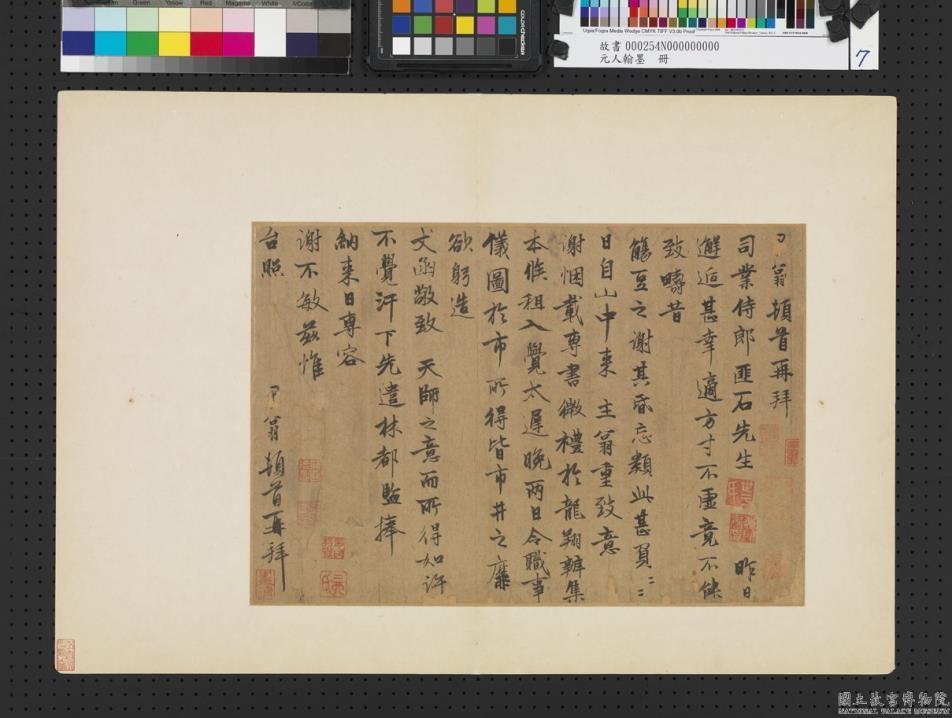 故書 000254N000000000
元人翰墨　冊
7
翁頓首再拜
司業侍郎匪石先生　昨日
邂逅甚幸適方寸不虛竟不能
致疇昔
觴豆之謝其昏忘類此甚負〻〻
日自山中來　主翁重致意
謝悃載專書微禮於龍翔辦集
本候租入覺太遲晚兩日令職事
儀圖於市所得皆市井之靡
欲躬造
丈函敬致　天師之意而所得如許
不覺汗下先遣林都監捧
納來日專容
謝不敏茲惟
台照
翁頓首再拜
國立故宮博物院
NATIONAL PALACE MUSEUM